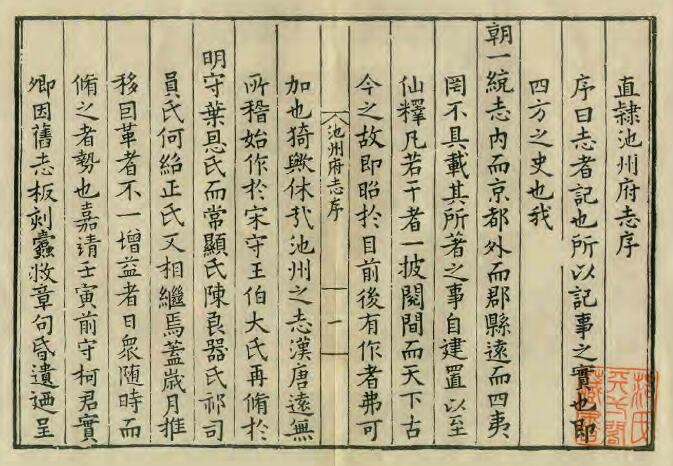 直隸池州府志序
序曰志者記也所以記事之實也即
四方之史也我
朝一統志內而京都外而郡縣遠而四夷
罔不具載其所著之事自建置以至
仙釋凡若干者一披閱間而天下古
今之故即昭於目前後有作者弗可
池州府志序
一
加也猗歟休哉池州之志漢唐遠無
所稽始作於宋守王伯大氏再脩於
明守葉恩氏而常顯氏陳良器氏祁司
員氏何紹正氏又相繼焉蓋歲月推
移因革者不一增益者日衆随時而
脩之者勢也嘉靖壬寅前守柯君實
卿因舊志板刻蠹章句昏遺廼呈